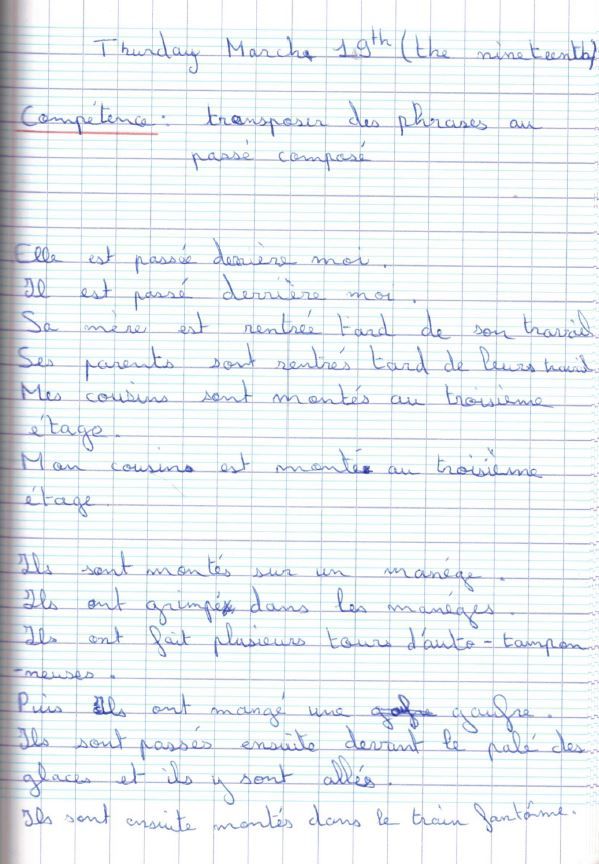 Thurday March 19th (the nineteenth)
Compétence : transposer des phrases au
passé composé
Elle est passée derrière moi.
Il est passé derrière moi.
Sa mère est rentrée tard de son travail
Ses parents sont rentrés tard de leurs
Mes cousins sont montés au troisième
étage.
Mon cousin est monté au troisième
étage
Ils sont montés sur un manége.
Ils ont grimpé dans les manéges.
Ils ont fait plusieurs tours d'auto-tampon
-neuses.
Puis Ils ont mangé une gaufre.
Ils sont passés ensuite devant le palé des
glaces et ils y sont allés.
Ils sont ensuite montés dans le train fantôme.